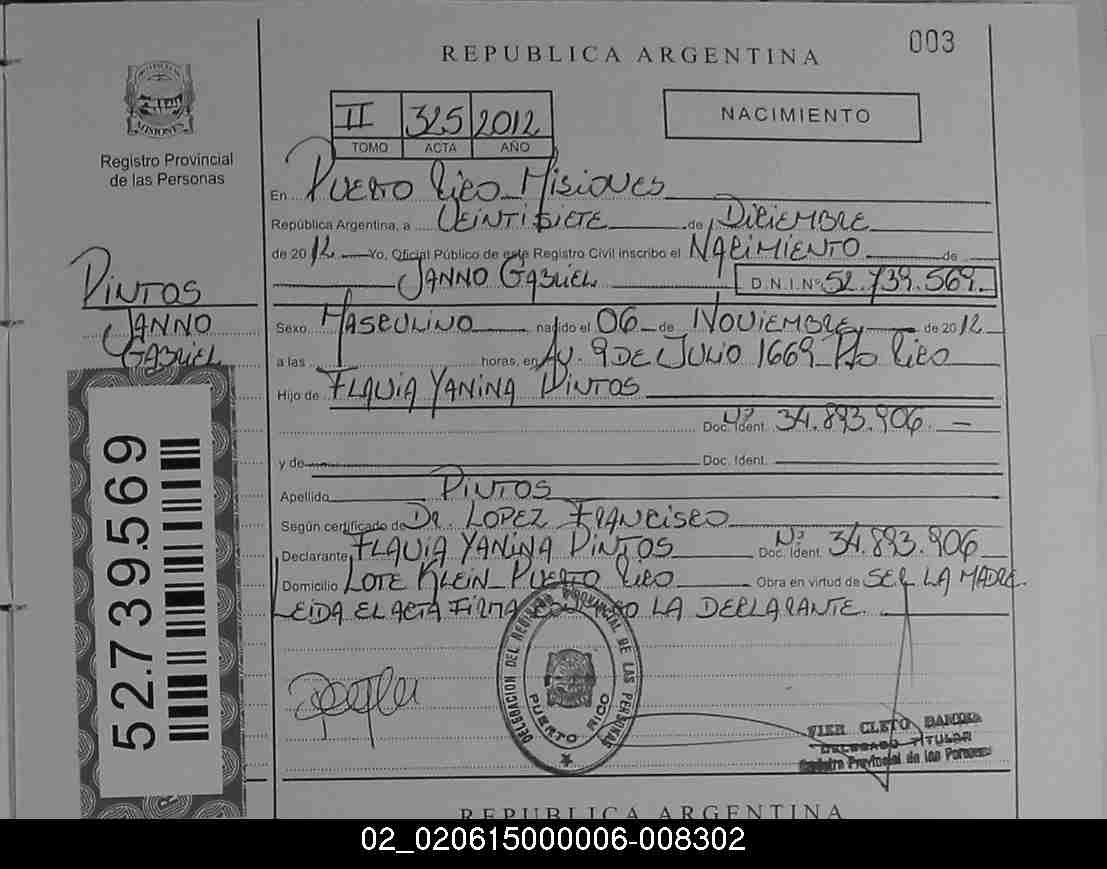 003
REPUBLICA ARGENTINA
NACIMIENTO
II 325 2012
TOMO ACTA AÑO
MISIONES
Registro Provincial
de las Personas
En Puerto Rico Misiones
República Argentina, a Veintisiete de Diciembre
de 2012 Yo, Oficial Público de este Registro Civil inscribo el Nacimiento de
Janno Gabriel D.N.I.Nº 52.739.569.
Pintos
Janno
Gabriel
Sexo Masculino nacido el 06 de Noviembre de 2012
a las horas, en Av. 9 de Julio 1669 Pto Rico
Hijo de Flavia Yanina Pintos
Doc. Ident. Nº 34.893.906.
y de Doc. Ident.
Apellido Pintos
Según certificado de Dr. Lopez Francisco
Declarante Flavia Yanina Pintos Doc. Ident. Nº 34.893.906
Domicilio Lote Klein Puerto Rico Obra en virtud de ser la madre
Leida el acta firma la declarante.
52.739.569
DELEGACION DEL REGISTRO PROVINCIAL DE LAS PERSONAS
PUERTO RICO
CLETO
DELEGADO TITULAR
Registro Provincial de las Personas
REPUBLICA ARGENTINA
02_020615000006-008302